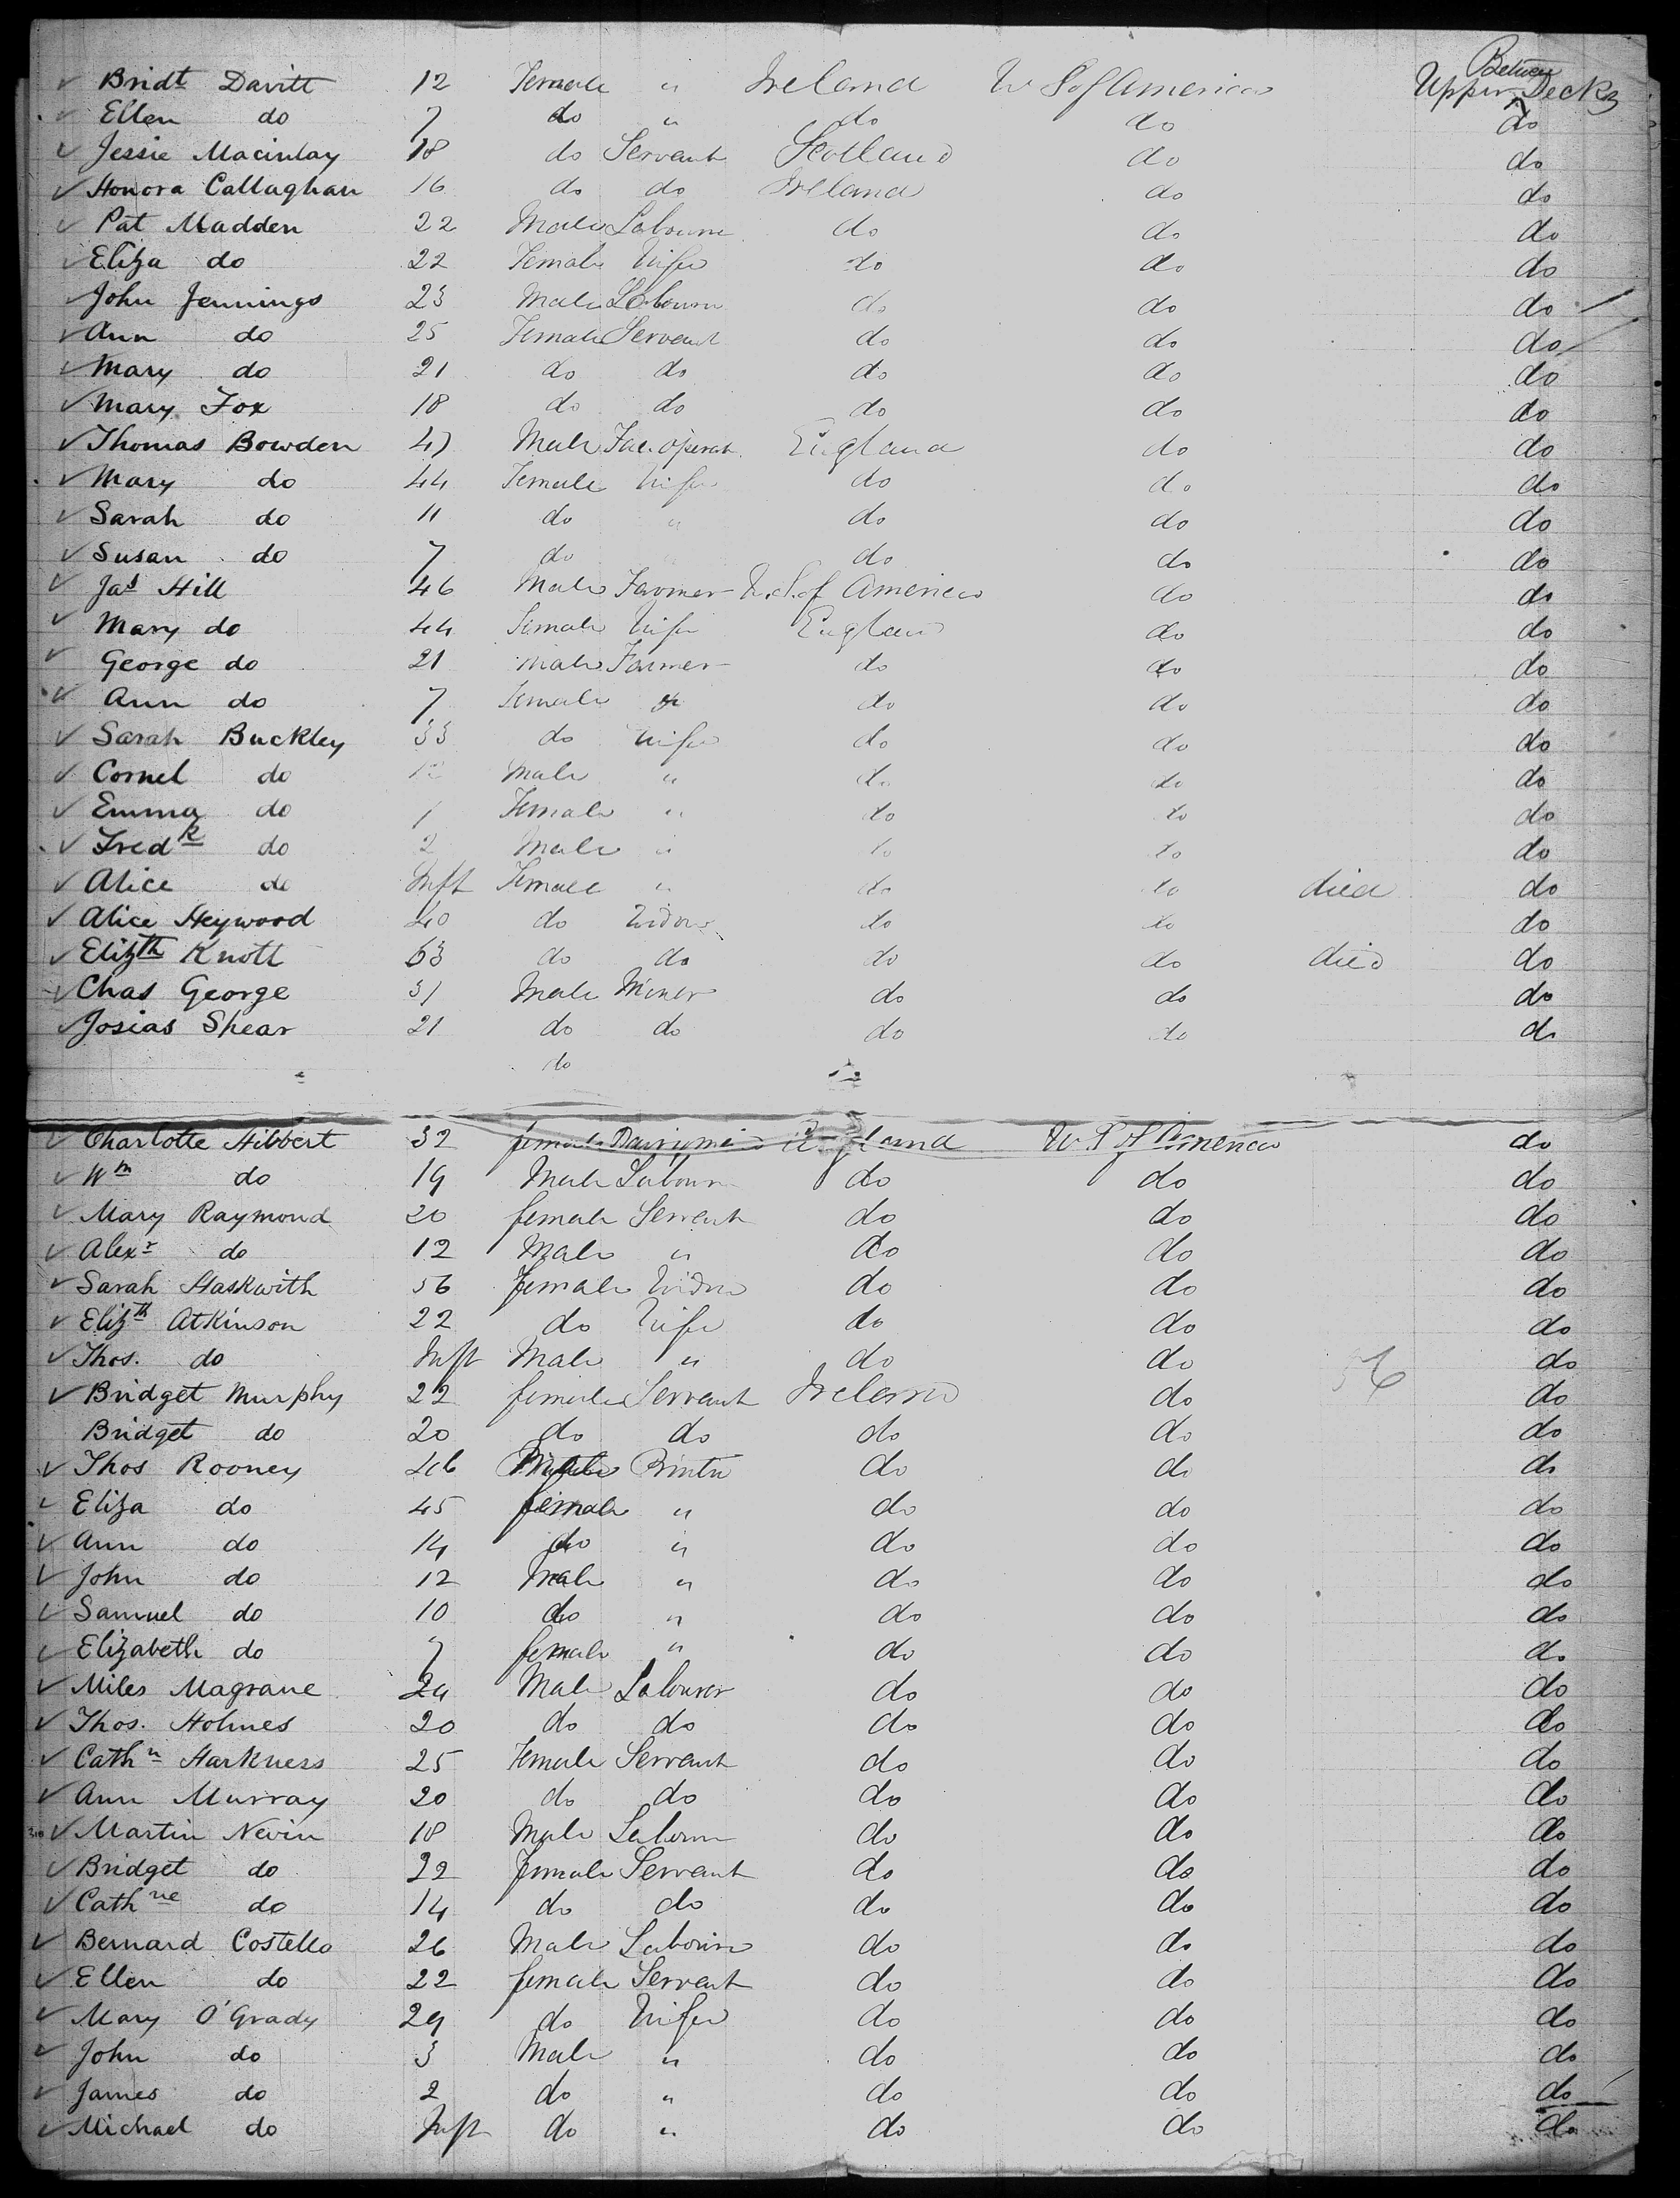 Between
Bridt Davitt 12 Female " Ireland U S of America Upper Decks
Ellen do 7 do " do do do
Jessie Macinlay 18 do Servant Scotland do do
Honora Callaghan 16 do do Ireland do do
Pat Madden 22 Male Labourer do do do
Eliza do 22 Female Wife do do do
John Jennings 23 Male Labourer do do do
Ann do 25 Female Servant do do do
Mary do 21 do do do do do
Mary Fox 18 do do do do do
Thomas Bowden 47 Male Fac. Operat. England do do
Mary do 44 Female Wife do do do
Sarah do 11 do " do do do
Susan do 7 do do do do
Jas Hill 46 Male Farmer U.S. of America do do
Mary do 44 Female Wife England do do
George do 21 Male Farmer do do do
Ann do 7 Female do do do
Sarah Buckley 33 do Wife do do do
Cornel do Male " do do do
Emma do 1 Female " do do do
Fredk do 2 Male " do do do
Alice do Inft Female " do do died do
Alice Heywood 40 do Widow do do do
Elizth Knott 63 do do do do died do
Chas George 31 Male Miner do do do
Josias Shear 21 do do do do do
do
Charlotte Hibbert 32 female England U S of America do
Wm do 19 Male Labourer do do do
Mary Raymond 20 female Servant do do do
Alexr do 12 Male " do do do
Sarah Haskwith 56 female Widow do do do
Elizth Atkinson 22 do Wife do do do
Thos. do Inft Male " do do do
Bridget Murphy 22 female Servant Ireland do do
Bridget do 20 do do do do do
Thos Rooney 46 Male Printer do do do
Eliza do 45 female " do do do
Ann do 14 do " do do do
John do 12 Male " do do do
Samuel do 10 do " do do do
Elizabeth do 7 female " do do do
Miles Magrane 24 Male Labourer do do do
Thos. Holmes 20 do do do do do
Cathn Harkness 25 Female Servant do do do
Ann Murray 20 do do do do do
Martin Nevin 18 Male Labourer do do do
Bridget do 22 female Servant do do do
Cathne do 14 do do do do do
Bernard Costello 26 Male Labourer do do do
Ellen do 22 female Servant do do do
Mary O'Grady 29 do Wife do do do
John do 3 Male " do do do
James do 2 do " do do do
Michael do Inft do " do do do